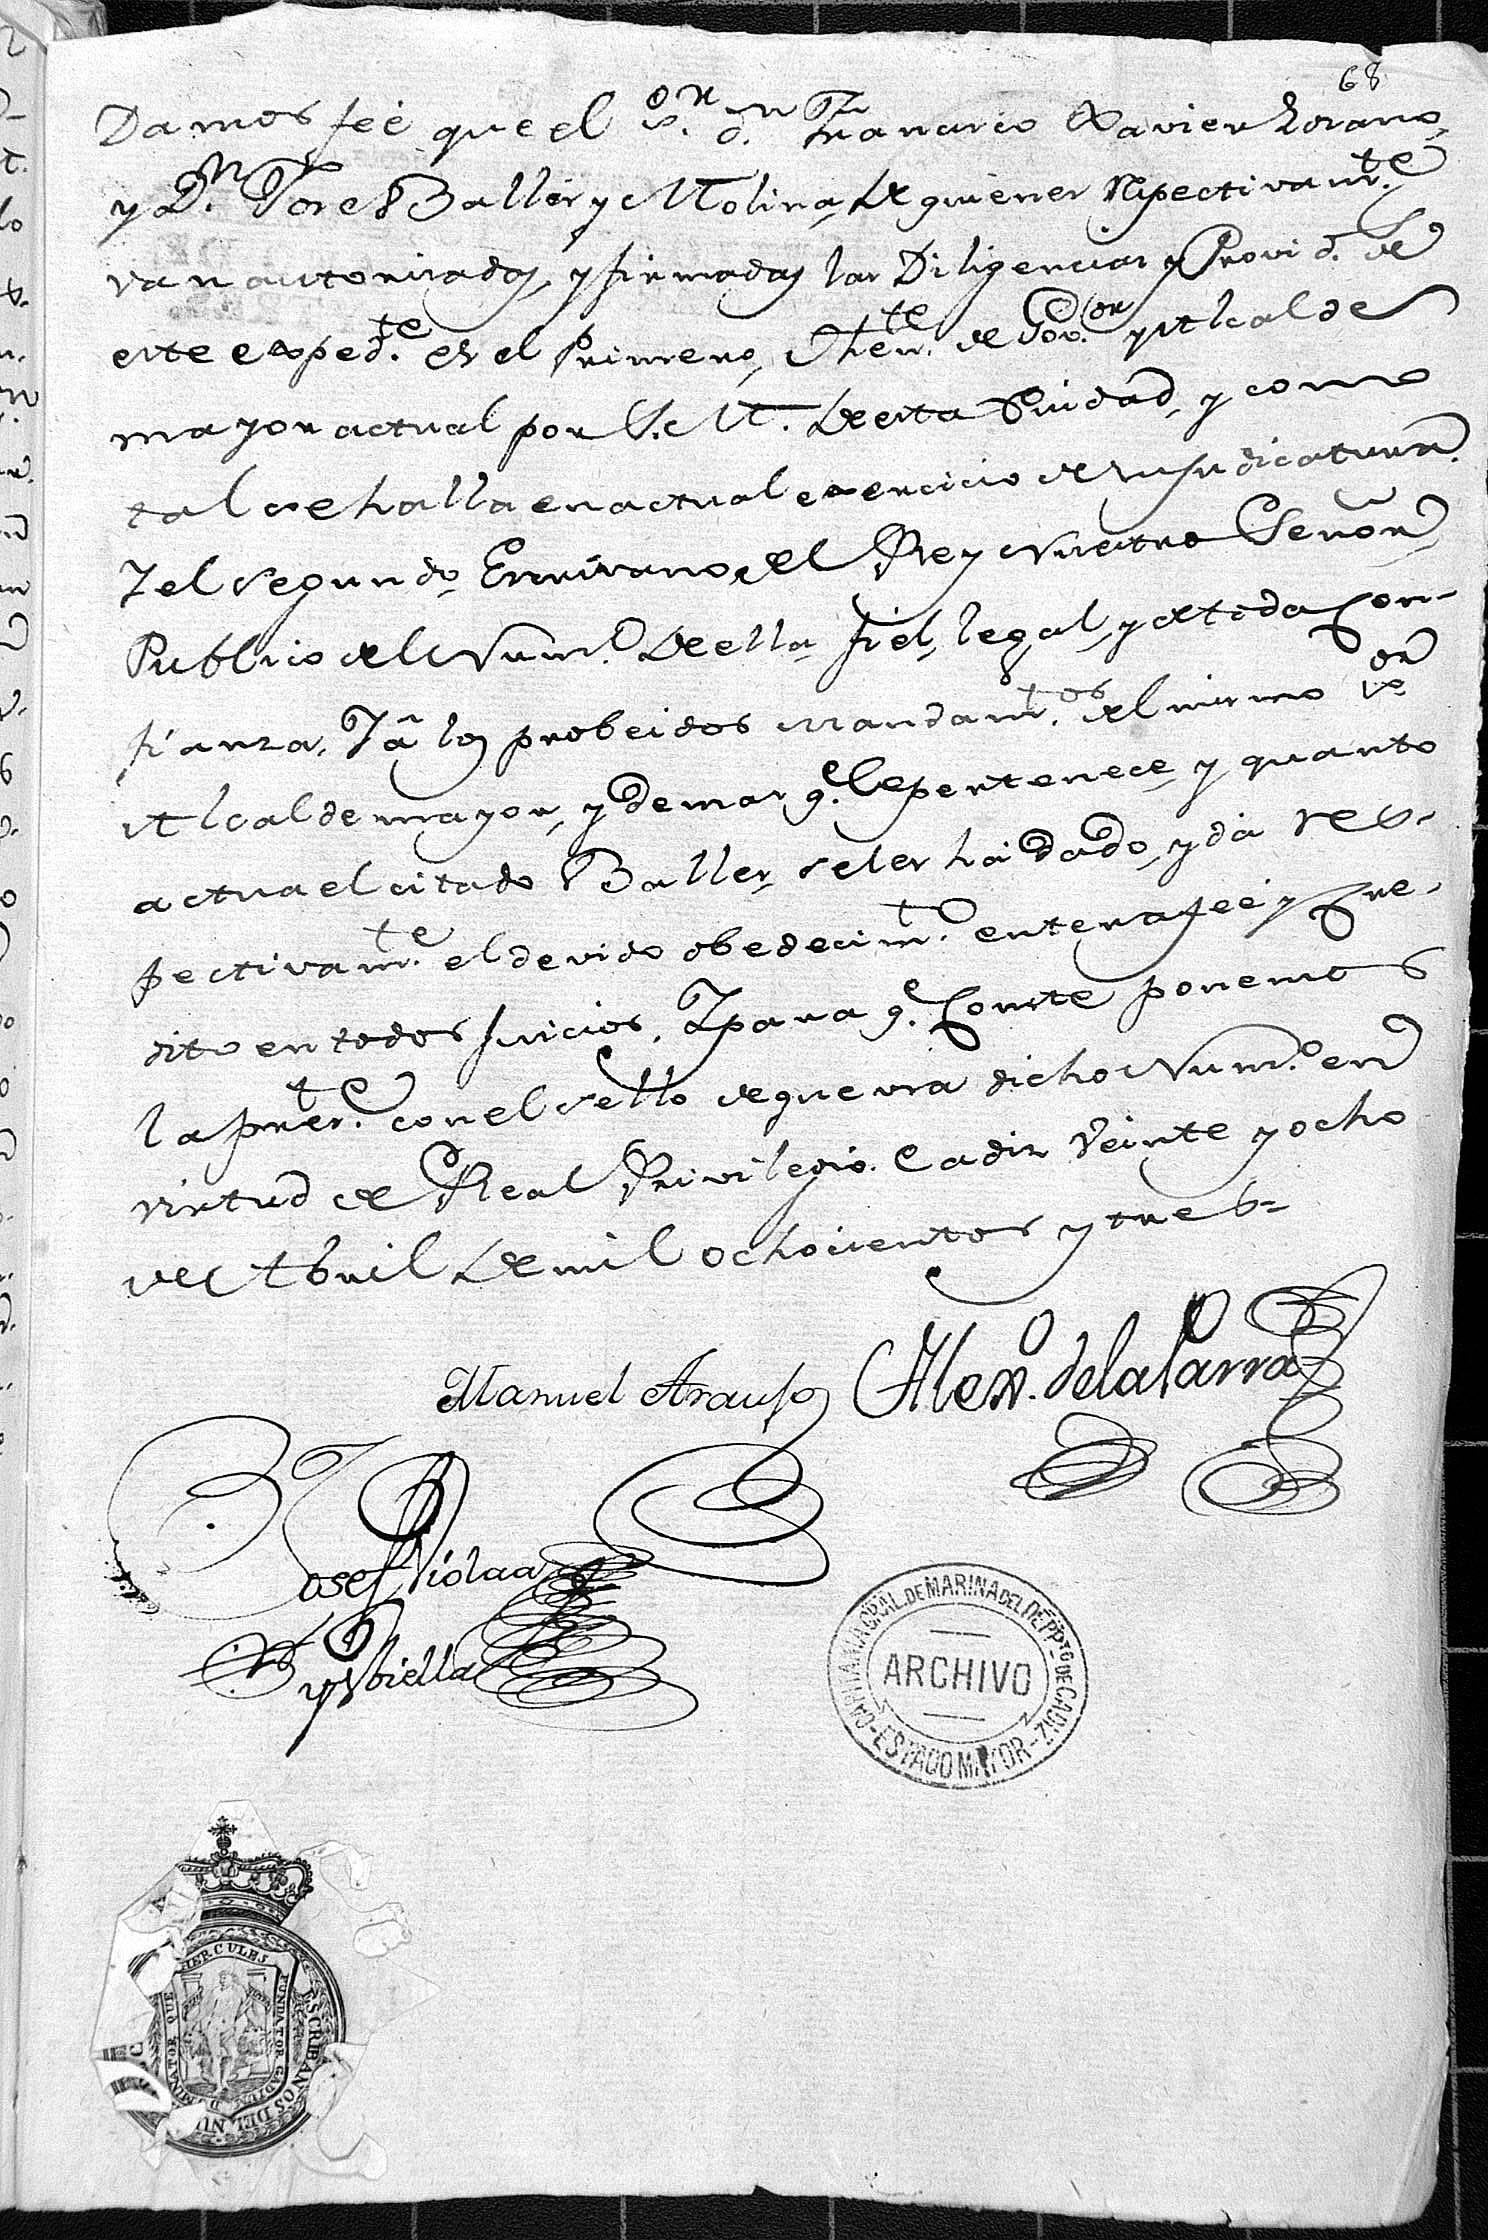 68
Damos feé que el S.or d.n Francisco Xavier Lozano,
y D.n Jose Balles y Molina, de quienes respectivam.te
van autorizadas, y firmadas las Diligencias y Provid.s de
este exped.te es el Primero, Then.te de Gov.or y Alcalde
mayor actual por S. M. de esta Ciudad, y como
tal se halla en actual exercicio de su Judicatura.
Y el segundo, Escrivano del Rey Nuestro Señor,
Publico del Num.o de ella, fiel, legal, y de toda con-
fianza, Y á los probeidos mandam.tos del mismo S.or
Alcalde mayor, y demas q.e le pertenece, y quanto
actua el citado Balles, se les há dado, y dá res-
pectivam.te el devido obedecim.to entera feé y Cre-
dito en todos Juicios. Y para q.e Conste ponemos
la pres.te con el sello de que usa dicho Num.o en
virtud de Real Privilegio. Cadiz Veinte y ocho
de Abril de mil ochocientos y tres =
Manuel Araujo
Alex.o de la Parra
Josef Violaa
y Ubiella
CAPITANIA GRAL. DE MARINA DEL DEPPTO DE CADIZ
ARCHIVO
-ESTADO MAYOR-
HERCULES FUNDATOR GADIUM DOMINATOR QUE
ESCRIBANOS DEL NU